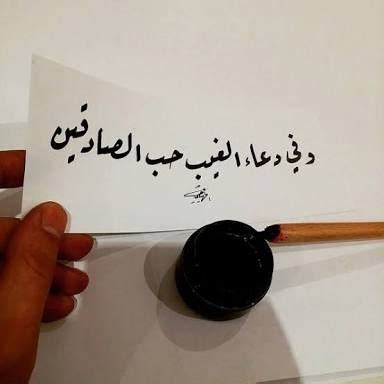 وفي دعاء الغيب حب الصادقين